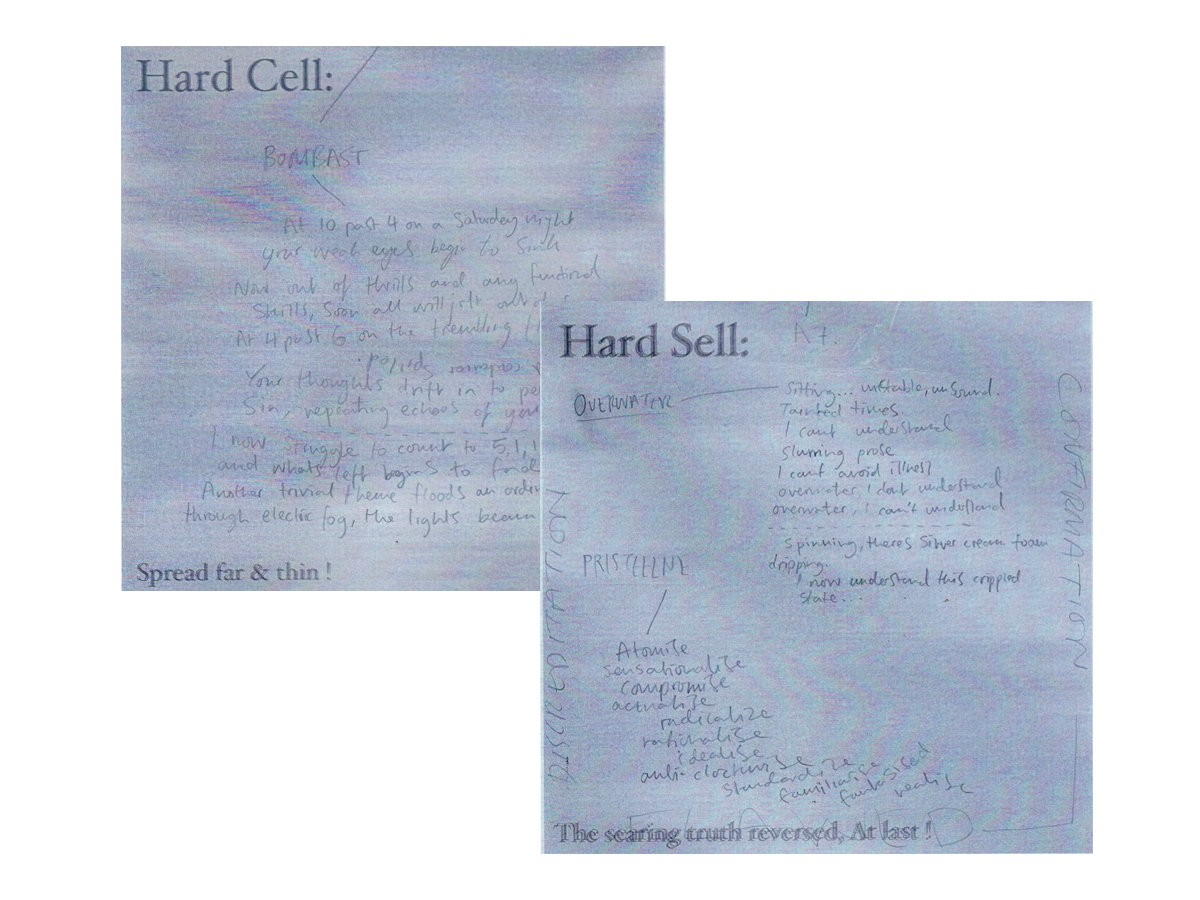 Hard Cell:
BOMBAST
At 10 past 4 on a Saturday night
your weak eyes begin to sink
Now out of thrills and any functional
skills, soon all will jilt out of
At 4 past 6 on the trembling
spiked.
Your thoughts drift in to
Sin, repeating echoes of
I now struggle to count to 5, 1, 1
and whats left begins to
Another trivial theme floods an
through electric fog, the lights
Spread far & thin !
Hard Sell:
A7.
OVERWATER
Sitting... unstable, unsound.
Tainted times
I cant understand
Slurring prose
I cant avoid illness
overwater, I dont understand
overwater, I can't understand
Spinning, theres Silver cream foam
dripping.
I now understand this crippled
state...
PRISTELLNE
Atomise
sensationalise
compromise
actualise
radicalize
rationalise
idealise
anti-clockwise
standardize
familiarise
fantasised
realise
CONFIRMATION
The searing truth reversed, At last !